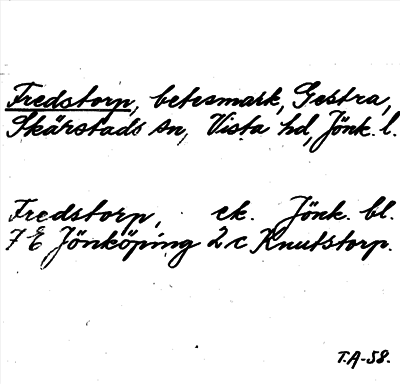 Fredstorp, betesmark, Gestra,
Skärstads sn, Vista hd, Jönk. l.
Fredstorp, ek. Jönk. bl.
7 E Jönköping 2 c Knutstorp.
T.A-58.